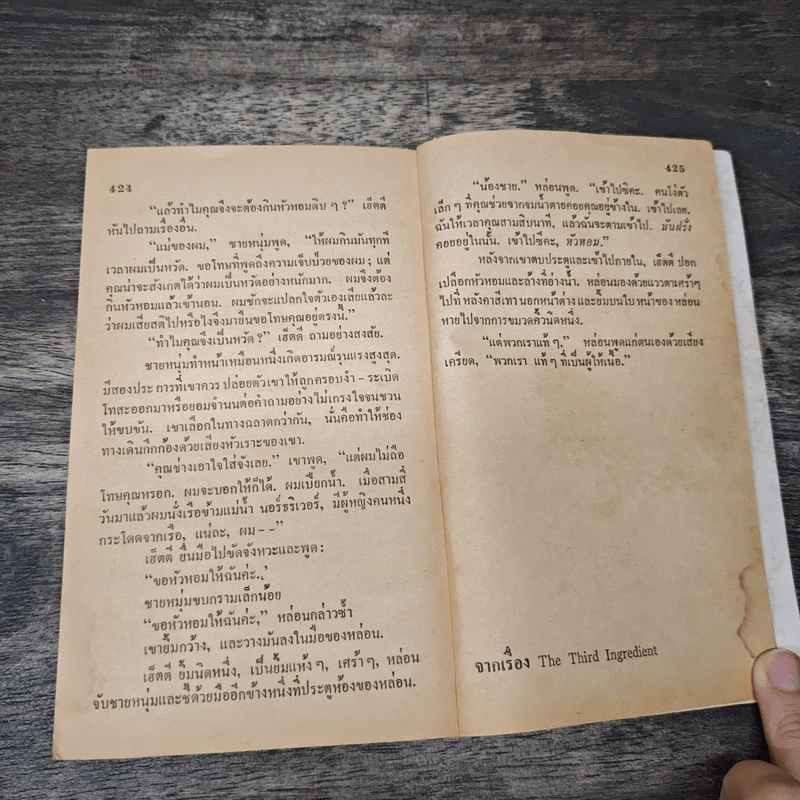 424
“แล้วทำไมคุณจึงจะต้องกินหัวหอมดิบ ๆ ?” เฮ็ตตี
หันไปถามเรื่องอื่น.
“แม่ของผม,” ชายหนุ่มพูด, “ให้ผมกินมันทุกที
เวลาผมเป็นหวัด. ขอโทษที่พูดถึงความเจ็บป่วยของผม ; แต่
คุณน่าจะสังเกตได้ว่าผมเป็นหวัดอย่างหนักมาก. ผมจึงต้อง
กินหัวหอมแล้วเข้านอน. ผมชักจะแปลกใจตัวเองเสียแล้วละ
ว่าผมเสียสติไปหรือไงจึงมายืนขอโทษคุณอยู่ตรงนี้.”
“ทำไมคุณจึงเป็นหวัด ?” เฮ็ตตี ถามอย่างสงสัย.
ชายหนุ่มทำหน้าเหมือนหนึ่งเกิดอารมณ์รุนแรงสูงสุด.
มีสองประการที่เขาควร ปล่อยตัวเขาให้ถูกครอบงำ – ระเบิด
โทสะออกมาหรือยอมจำนนต่อคำถามอย่างไม่เกรงใจจนชวน
ให้ขบขัน. เขาเลือกในทางฉลาดกว่ากัน, นั่นคือทำให้ช่อง
ทางเดินกึกก้องด้วยเสียงหัวเราะของเขา.
“คุณช่างเอาใจใส่จังเลย.” เขาพูด, “แต่ผมไม่ถือ
โทษคุณหรอก. ผมจะบอกให้ก็ได้. ผมเปียกน้ำ. เมื่อสามสี่
วันมาแล้วผมนั่งเรือข้ามแม่น้ำ นอร์ธริเวอร์, มีผู้หญิงคนหนึ่ง
กระโดดจากเรือ, แน่ละ, ผม – –”
เฮ็ตตี ยื่นมือไปขัดจังหวะและพูด :
“ขอหัวหอมให้ฉันค่ะ..’
ชายหนุ่มขบกรามเล็กน้อย
“ขอหัวหอมให้ฉันค่ะ,” หล่อนกล่าวซ้ำ
เขายิ้มกว้าง, และวางมันลงในมือของหล่อน.
เฮ็ตตี ยิ้มนิดหนึ่ง, เป็นยิ้มแห้ง ๆ, เศร้า ๆ, หล่อน
จับชายหนุ่มและชี้ด้วยมืออีกข้างหนึ่งที่ประตูห้องของหล่อน.
425
“น้องชาย.” หล่อนพูด. “เข้าไปซิคะ. คนโง่ตัว
เล็ก ๆ ที่คุณช่วยจากจมน้ำตายคอยคุณอยู่ข้างใน. เข้าไปเลย.
ฉันให้เวลาคุณสามสิบนาที, แล้วฉันจะตามเข้าไป. มันฝรั่ง
คอยอยู่ในนั้น. เข้าไปซีคะ, หัวหอม.”
หลังจากเขาตบประตูและเข้าไปภายใน, เฮ็ตตี ปอก
เปลือกหัวหอมและล้างที่อ่างน้ำ. หล่อนมองด้วยแววตาเศร้าๆ
ไปที่ หลังคาสีเทา นอกหน้าต่าง และยิ้มบนใบ หน้าของหล่อน
หายไปจากการขมวดคิ้วนิดหนึ่ง.
“แต่พวกเราแท้ ๆ,” หล่อนพูดแก่ตนเองด้วยเสียง
เครียด, “พวกเรา แท้ ๆ ที่เป็นผู้ให้เนื้อ.”
จากเรื่อง The Third Ingredient